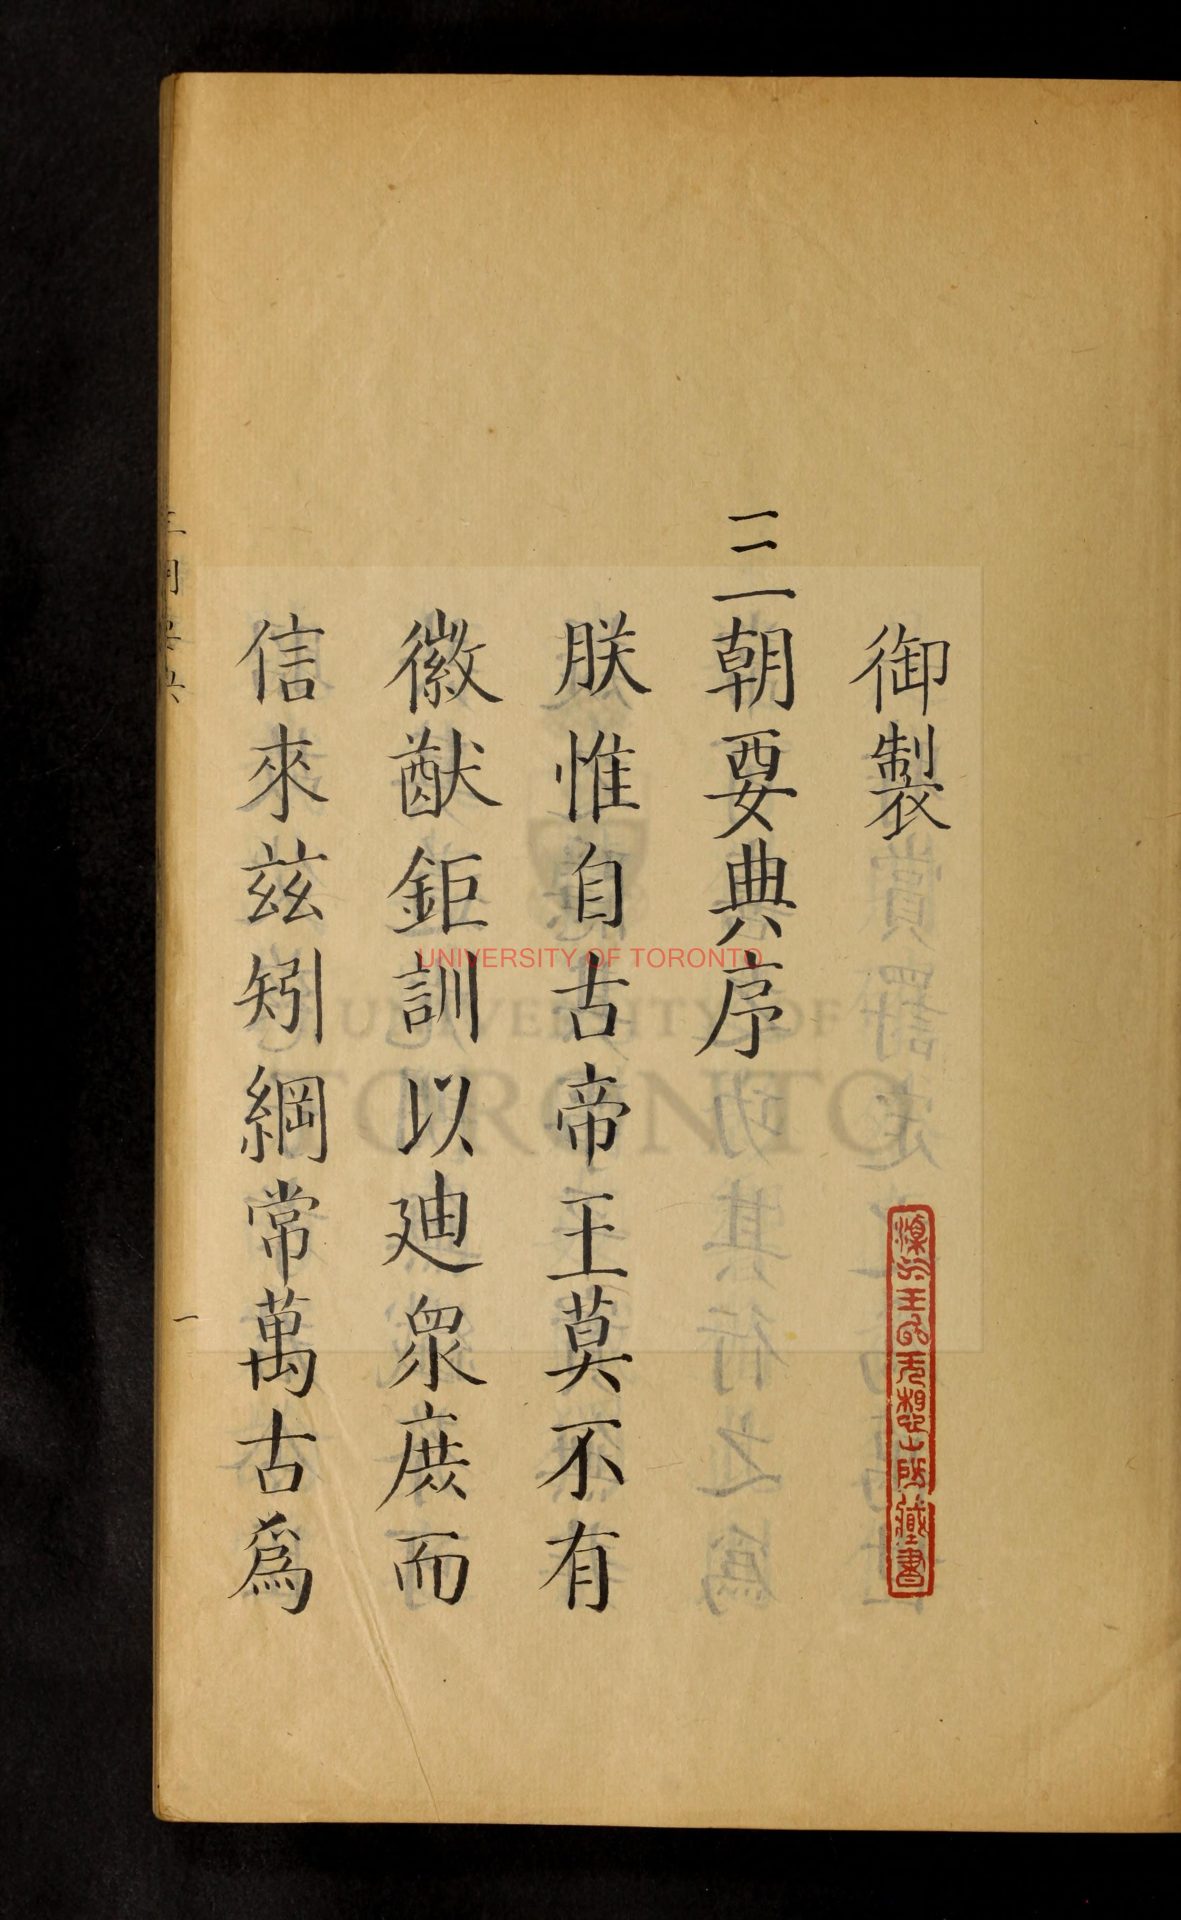 御製
三朝要典序
朕惟自古帝王莫不有
徽猷鉅訓以廸衆庶而
信來兹矧綱常萬古爲
一
UNIVERSITY OF TORONTO
UNIVERSITY OF
TORONTO